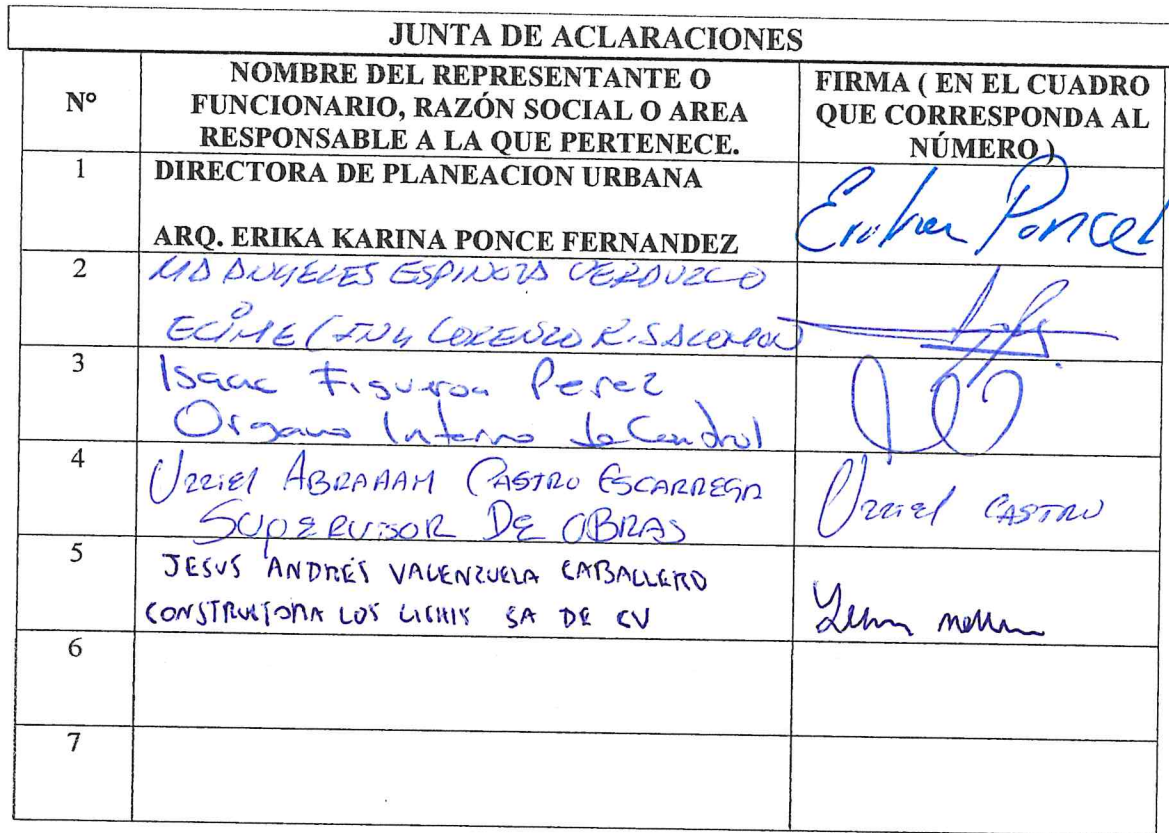 JUNTA DE ACLARACIONES
Nº
NOMBRE DEL REPRESENTANTE O
FUNCIONARIO, RAZÓN SOCIAL O AREA
RESPONSABLE A LA QUE PERTENECE.
FIRMA ( EN EL CUADRO
QUE CORRESPONDA AL
NÚMERO )
1
DIRECTORA DE PLANEACION URBANA
ARQ. ERIKA KARINA PONCE FERNANDEZ
Ponce
2
MA ANGELES ESPINOZA VERDUZCO
ECIME (ING LORENZO R. SALOMON
3
Isaac Figueroa Perez
Organo Interno de Control
4
Uzziel ABRAHAM CASTRO ESCARREGA
SUPERVISOR DE OBRAS
Uzziel CASTRO
5
JESUS ANDRÉS VALENZUELA CABALLERO
CONSTRUCTORA LOS LICHIS SA DE CV
6
7